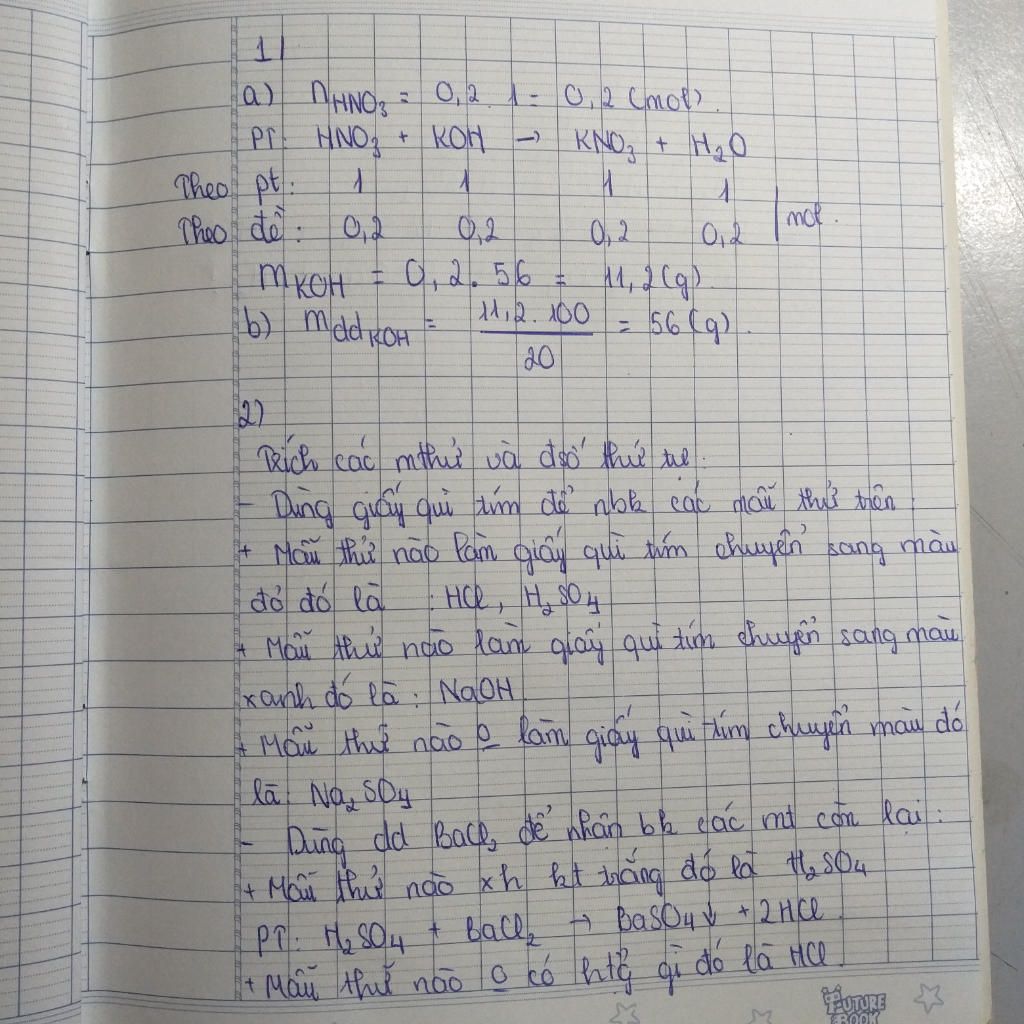 1/
a) nHNO₃ = 0,2 . 1 = 0,2 (mol).
PT: HNO₃ + KOH → KNO₃ + H₂O
Theo pt: 1 1 1 1
Theo đề: 0,2 0,2 0,2 0,2 | mol.
mKOH = 0,2 . 56 = 11,2 (g)
b) mddKOH = 11,2 . 100 / 20 = 56 (g).
2)
Trích các mthử và đsố thứ tự.
- Dùng giấy quì tím để nbk các mẫu thử trên:
+ Mẫu thử nào làm giấy quì tím chuyển sang màu
đỏ đó là : HCl, H₂SO₄
+ Mẫu thử nào làm giấy quì tím chuyển sang màu
xanh đó là : NaOH
+ Mẫu thử nào o làm giấy quì tím chuyển màu đó
là: Na₂SO₄
- Dùng dd BaCl₂ để nhận bk các mt còn lại :
+ Mẫu thử nào xh kt trắng đó là H₂SO₄
PT: H₂SO₄ + BaCl₂ → BaSO₄↓ + 2HCl
+ Mẫu thử nào o có htg gì đó là HCl.
FUTURE
BOOK